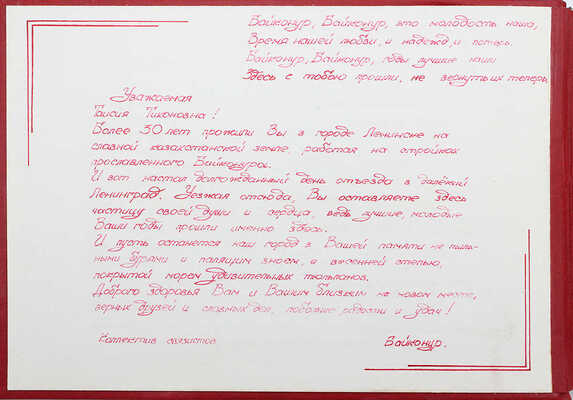 Байконур, Байконур, это молодость наша,
Время нашей любви, и надежд, и потерь.
Байконур, Байконур, годы лучшие наши
Здесь с тобою прошли, не вернуть их теперь.
Уважаемая
Таисия Тихоновна!
Более 30 лет прожили Вы в городе Ленинске на
славной казахстанской земле, работая на стройках
прославленного Байконура.
И вот настал долгожданный день отъезда в далёкий
Ленинград. Уезжая отсюда, Вы оставляете здесь
частицу своей души и сердца, ведь лучшие, молодые
Ваши годы прошли именно здесь.
И пусть останется наш город в Вашей памяти не пыль-
ными бурями и палящим зноем, а весенней степью,
покрытой морем удивительных тюльпанов.
Доброго здоровья Вам и Вашим близким на новом месте,
верных друзей и славных дел, побольше радости и удач!
Коллектив связистов
Байконур.